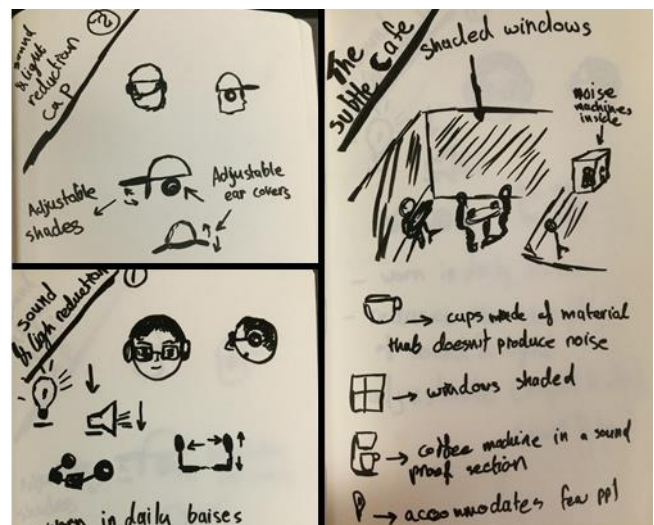 sound
& light
reduction
cap
2
Adjustable
shades
Adjustable
ear covers
sound
& ligh reduction
1
in daily baises
The
subtle cafe
shaded windows
noise
machines
inside
cups made of material
that doesn't produce noise
windows shaded
coffee machine in a sound
proof section
accommodates few ppl